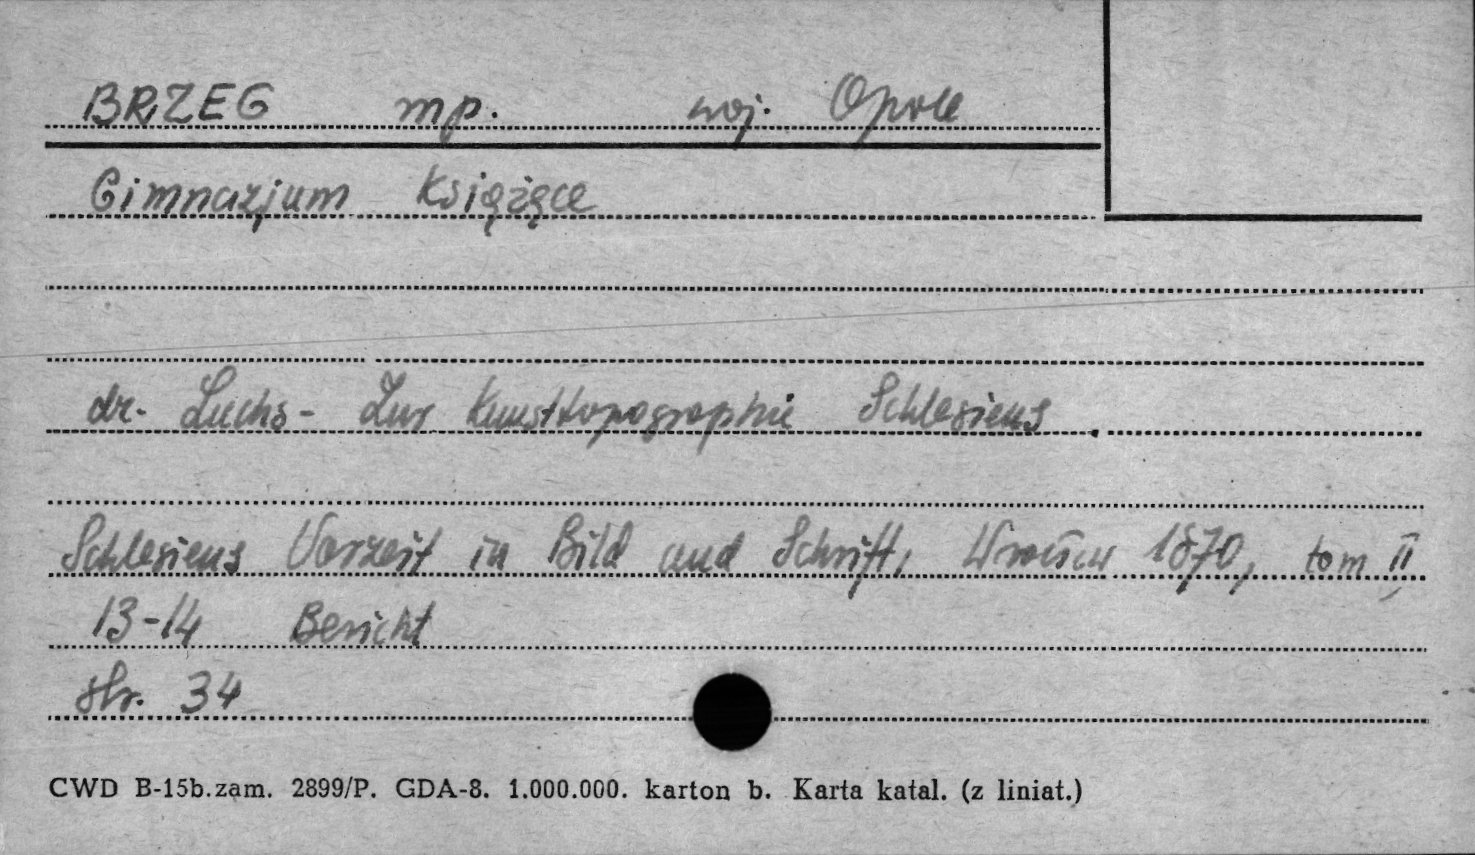 BRZEG mp. woj. Opole
Gimnazjum Książęce
dr. Luchs - Zur Kunsttopographie Schlesiens.
Schlesiens Vorzeit in Bild und Schrift, Wrocław 1870, tom II
13-14 Bericht
str. 34
CWD B-15b.zam. 2899/P. GDA-8. 1.000.000. karton b. Karta katal. (z liniat.)